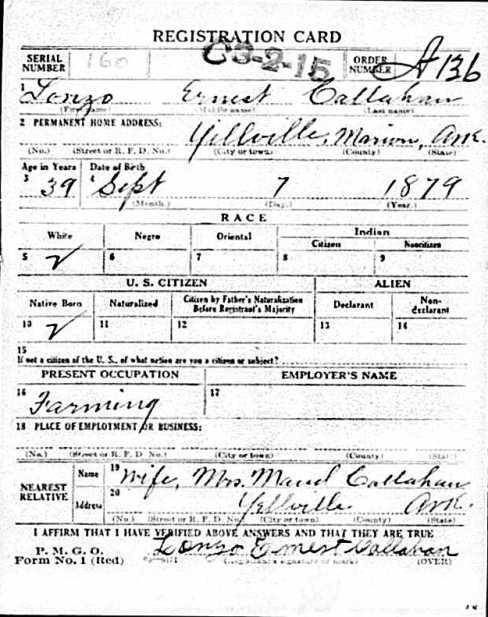 REGISTRATION CARD
SERIAL NUMBER 160 C3-2-15 ORDER NUMBER A136
1 Lonzo Ernest Callahan
(First name) (Middle name) (Last name)
2 PERMANENT HOME ADDRESS:
Yellville, Marion, Ark.
(No.) (Street or R. F. D. No.) (City or town) (County) (State)
Age in Years Date of Birth
3 39 4 Sept 7 1879
(Month.) (Day.) (Year.)
RACE
White Negro Oriental Indian
Citizen Noncitizen
5 6 7 8 9
U. S. CITIZEN ALIEN
Native Born Naturalized Citizen by Father's Naturalization Before Registrant's Majority Declarant Non-declarant
10 11 12 13 14
15
If not a citizen of the U. S., of what nation are you a citizen or subject?
PRESENT OCCUPATION EMPLOYER'S NAME
16 Farming 17
18 PLACE OF EMPLOYMENT OR BUSINESS:
(No.) (Street or R. F. D. No.) (City or town) (County) (State)
NEAREST RELATIVE Name 19 Wife, Mrs. Maud Callahan
Address 20 Yellville Ark.
(No.) (Street or R. F. D. No.) (City or town) (County) (State)
I AFFIRM THAT I HAVE VERIFIED ABOVE ANSWERS AND THAT THEY ARE TRUE
P. M. G. O.
Form No. 1 (Red) Lonzo Ernest Callahan
(Registrant's signature or mark) (OVER)